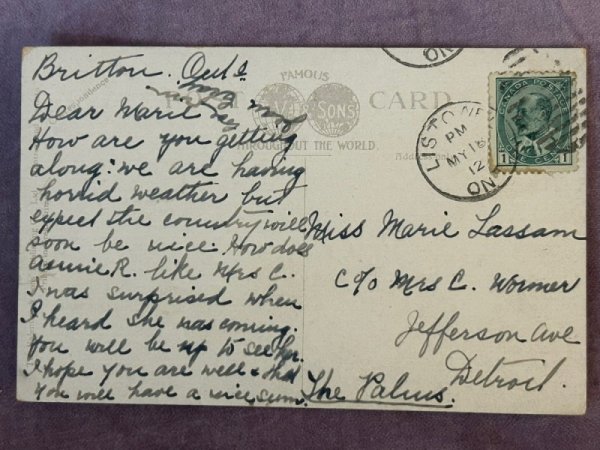 Britton. Ont.
FAMOUS
POST CARD
& SONS
THROUGHOUT THE WORLD.
ON
LISTOWEL
PM
MY 18
12
ONT
CANADA POSTAGE
1 1
Dear Marie
How are you getting
along: we are having
horrid weather but
expect the country will
soon be nice. How does
Annie R. like Mrs C.
I was surprised when
I heard she was coming.
You will be up to see her.
I hope you are well & that
you will have a nice sum.
Miss Marie Lassam
C/o Mrs C. Wormer
Jefferson Ave
Detroit.
The Palms.